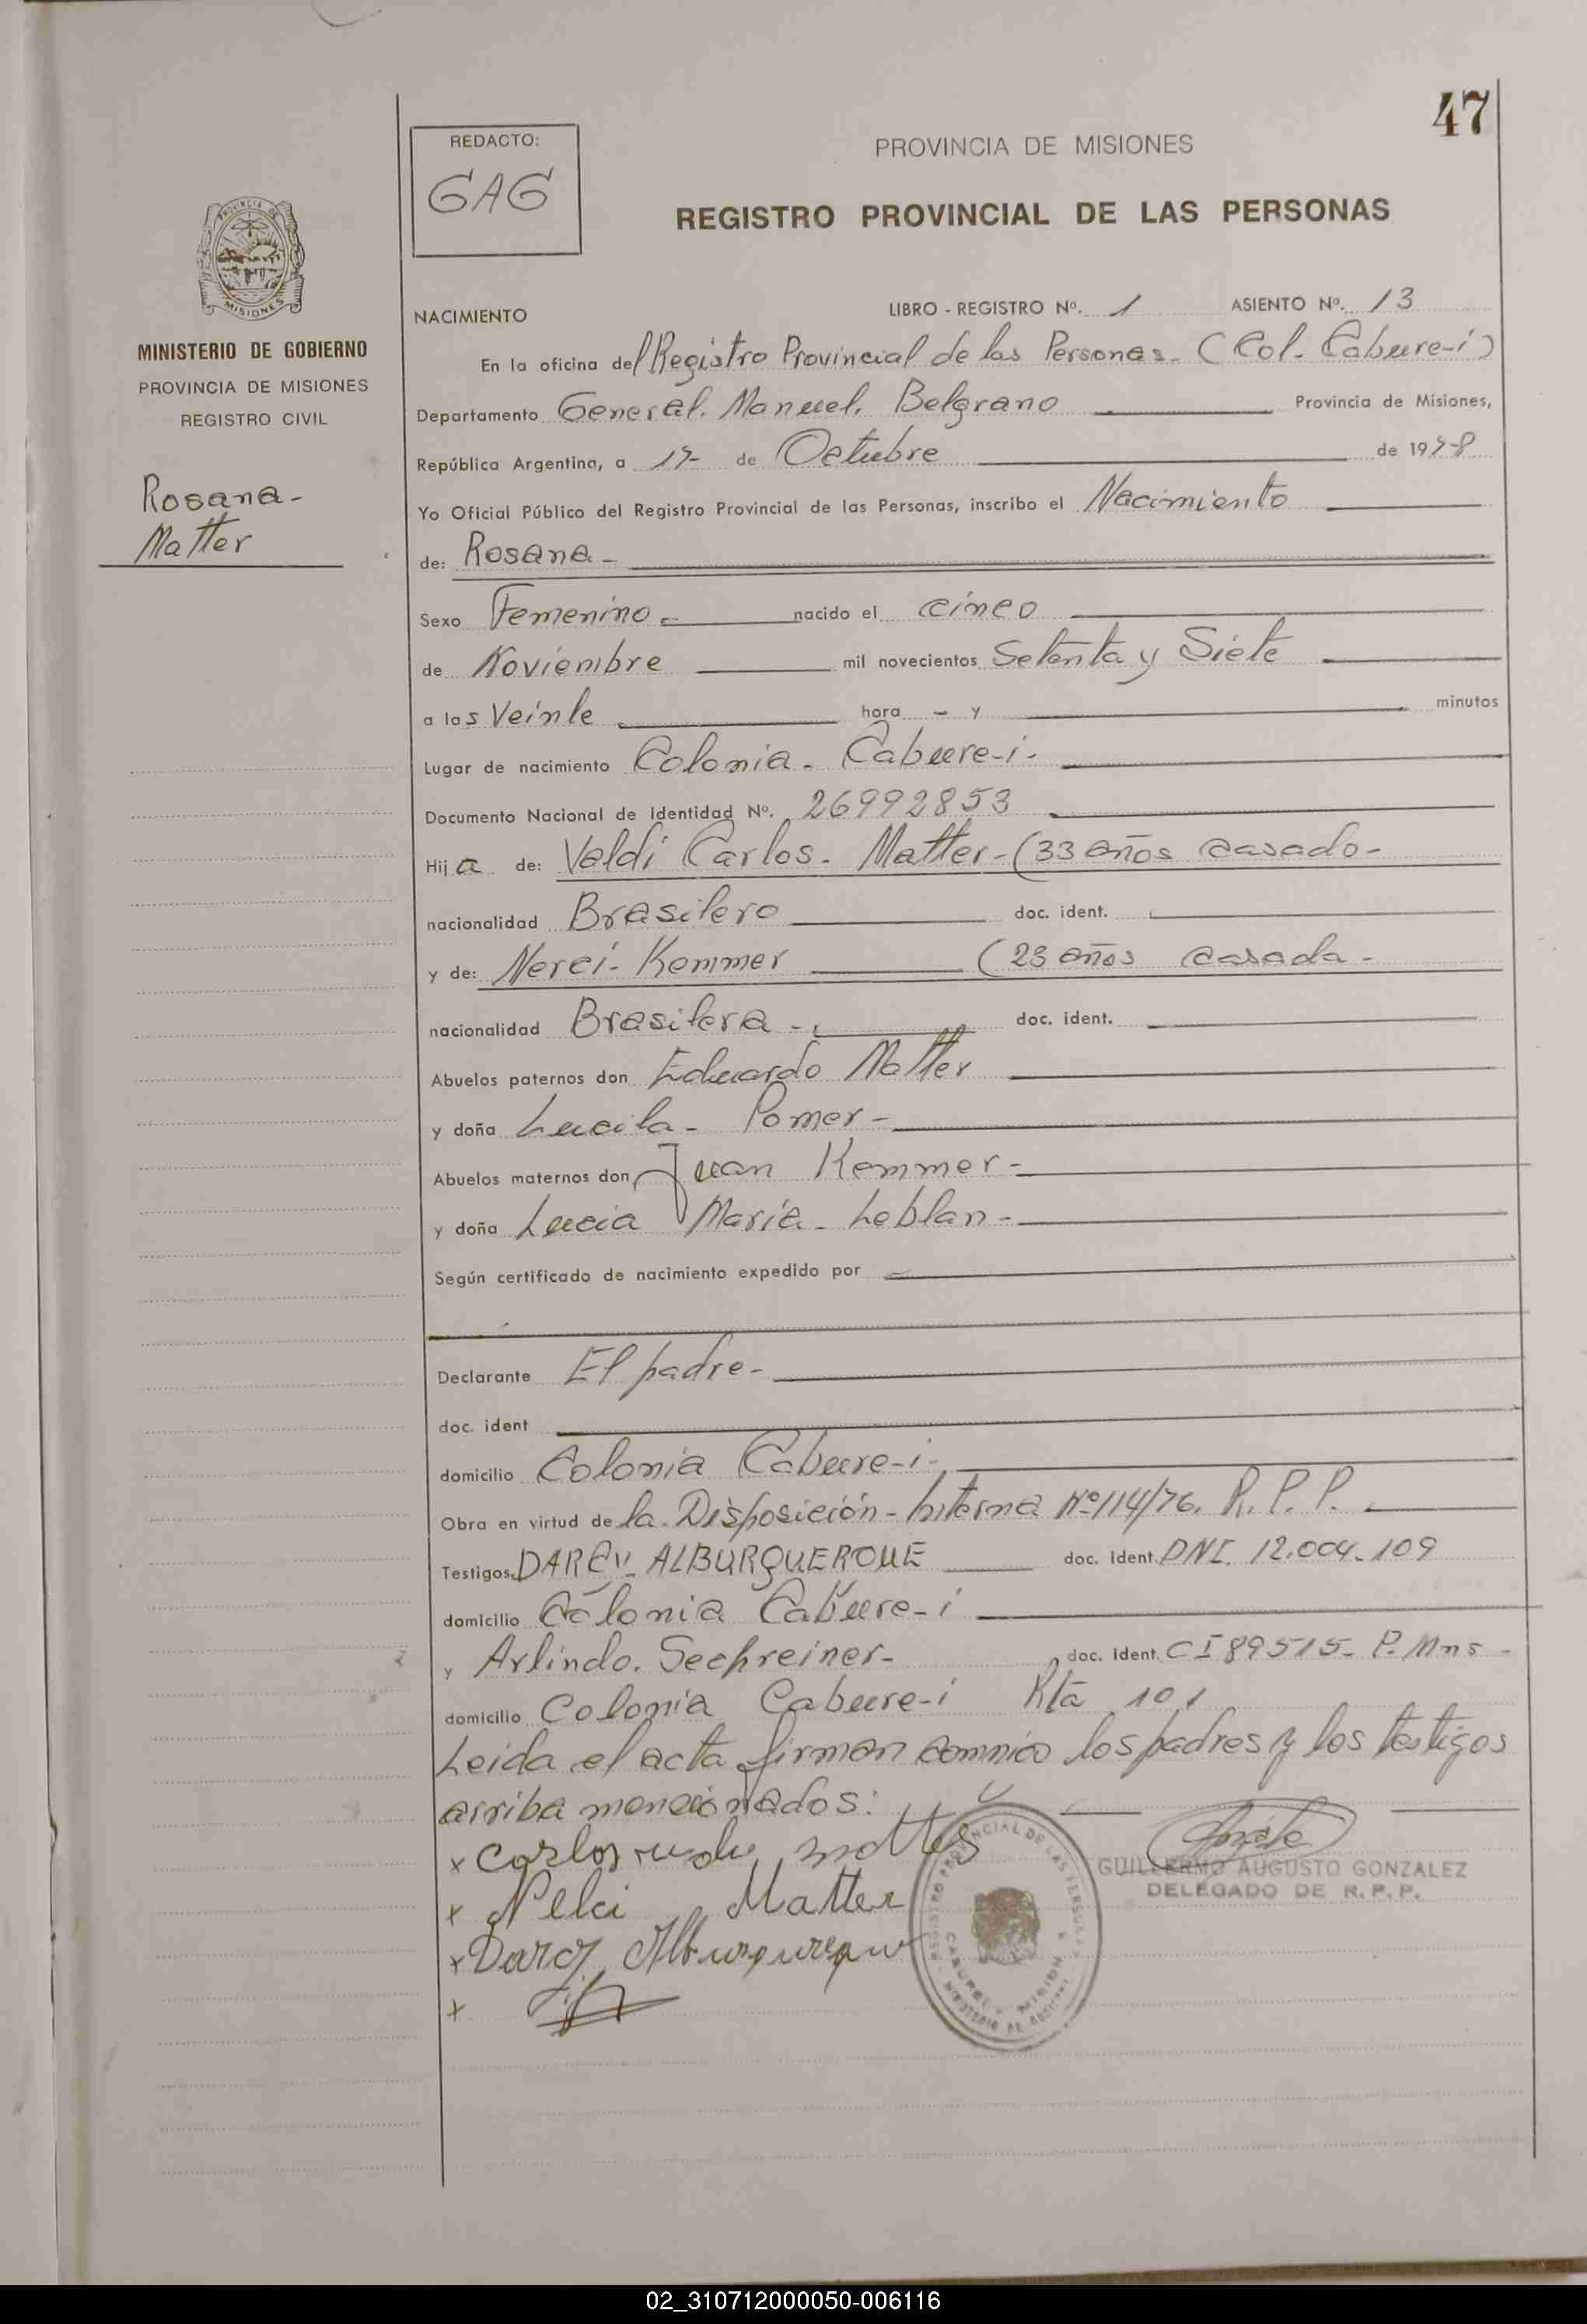 47
REDACTO:
GAG
PROVINCIA DE MISIONES
REGISTRO PROVINCIAL DE LAS PERSONAS
PROVINCIA DE
MISIONES
MINISTERIO DE GOBIERNO
PROVINCIA DE MISIONES
REGISTRO CIVIL
Rosana-
Matter
NACIMIENTO LIBRO - REGISTRO Nº. 1 ASIENTO Nº. 13
En la oficina del Registro Provincial de las Personas- (Col. Cabure-i)
Departamento General. Manuel. Belgrano Provincia de Misiones,
República Argentina, a 17- de Octubre de 1978
Yo Oficial Público del Registro Provincial de las Personas, inscribo el Nacimiento
de: Rosana-
Sexo Femenino- nacido el cinco
de Noviembre mil novecientos Setenta y Siete
a las Veinte hora - y minutos
Lugar de nacimiento Colonia- Cabure-i-
Documento Nacional de Identidad Nº. 26992853
Hija de: Valdi Carlos- Matter-(33 años casado-
nacionalidad Brasilero doc. ident.
y de: Nerci- Kemmer (23 años casada-
nacionalidad Brasilera- doc. ident.
Abuelos paternos don Eduardo Matter
y doña Lucila- Pomer-
Abuelos maternos don Juan Kemmer-
y doña Lucia Maria- Leblan-
Según certificado de nacimiento expedido por
Declarante El padre-
doc. ident
domicilio Colonia Cabure-i-
Obra en virtud de la Disposición-Interna Nº114/76. R.P.P.
Testigos ALBURQUERQUE doc. ident. DNI. 12.004-109
domicilio Colonia Cabure-i
y Arlindo. Sechreiner- doc. ident. CI 89515- P. Mns-
domicilio Colonia Cabure-i Rta 101
Leida el acta firman conmigo los padres y los testigos
arriba mencionados:
x Carlos
x Nelci Matter
x Darcy
x
GUILLERMO AUGUSTO GONZALEZ
DELEGADO DE R.P.P.
REGISTRO PROVINCIAL DE LAS PERSONAS
02_310712000050-006116